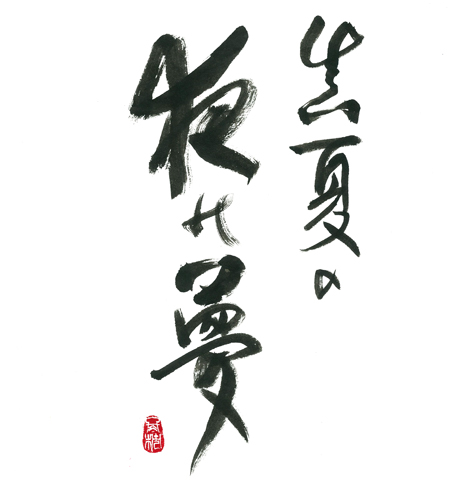 真夏の
夜の夢